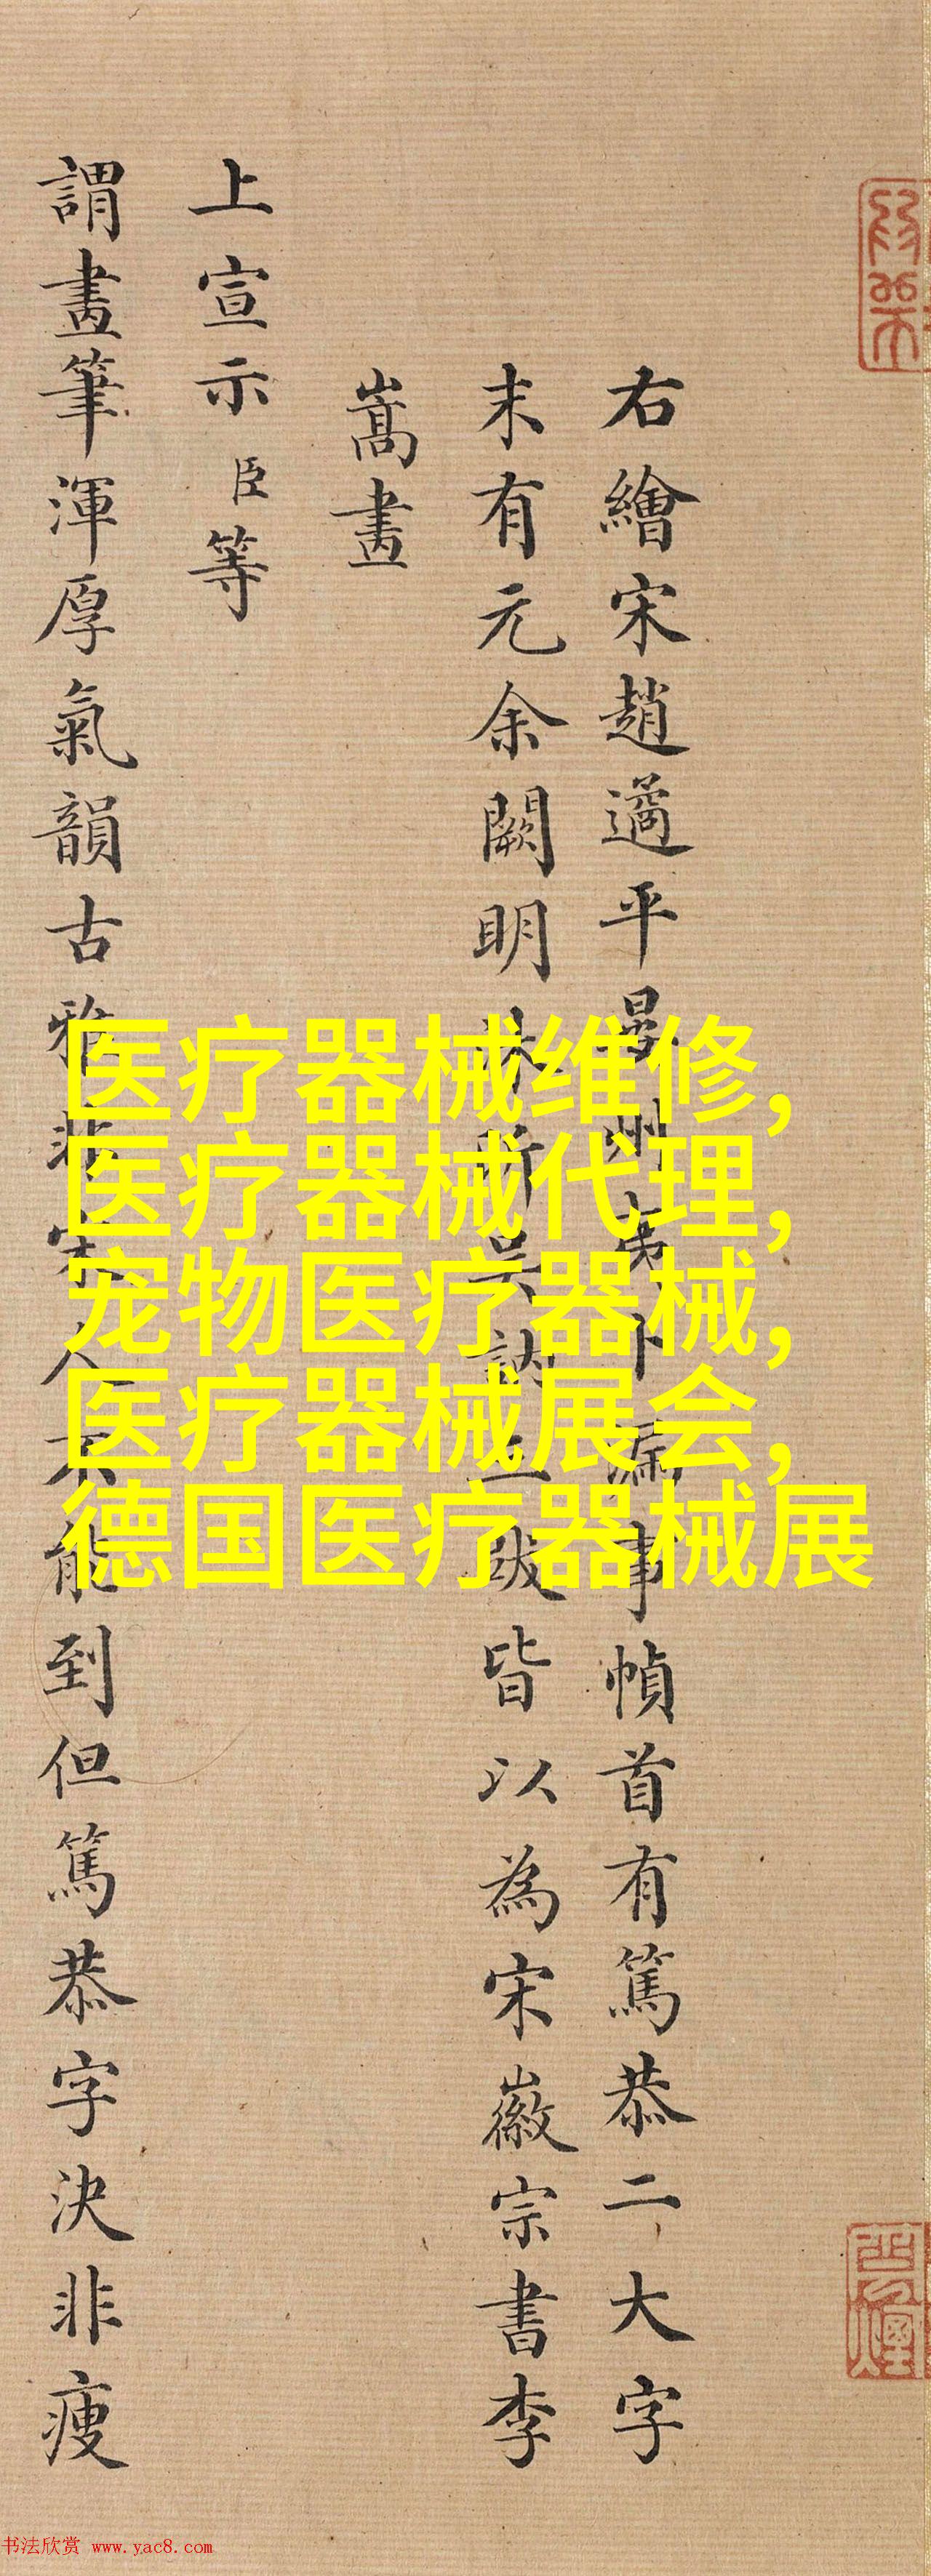 右繪宋趙遹平晏州夷卜漏事幀首有篤恭二大字
末有元余闕明林昕吳訥三跋皆以為宋徽宗書李
嵩畫
上宣示臣等
謂畫筆渾厚氣韻古雅非宋人不能到但篤恭字決非瘦
医疗器械维修,
医疗器械代理,
宠物医疗器械,
医疗器械展会,
德国医疗器械展
书法欣赏 www.yac8.com